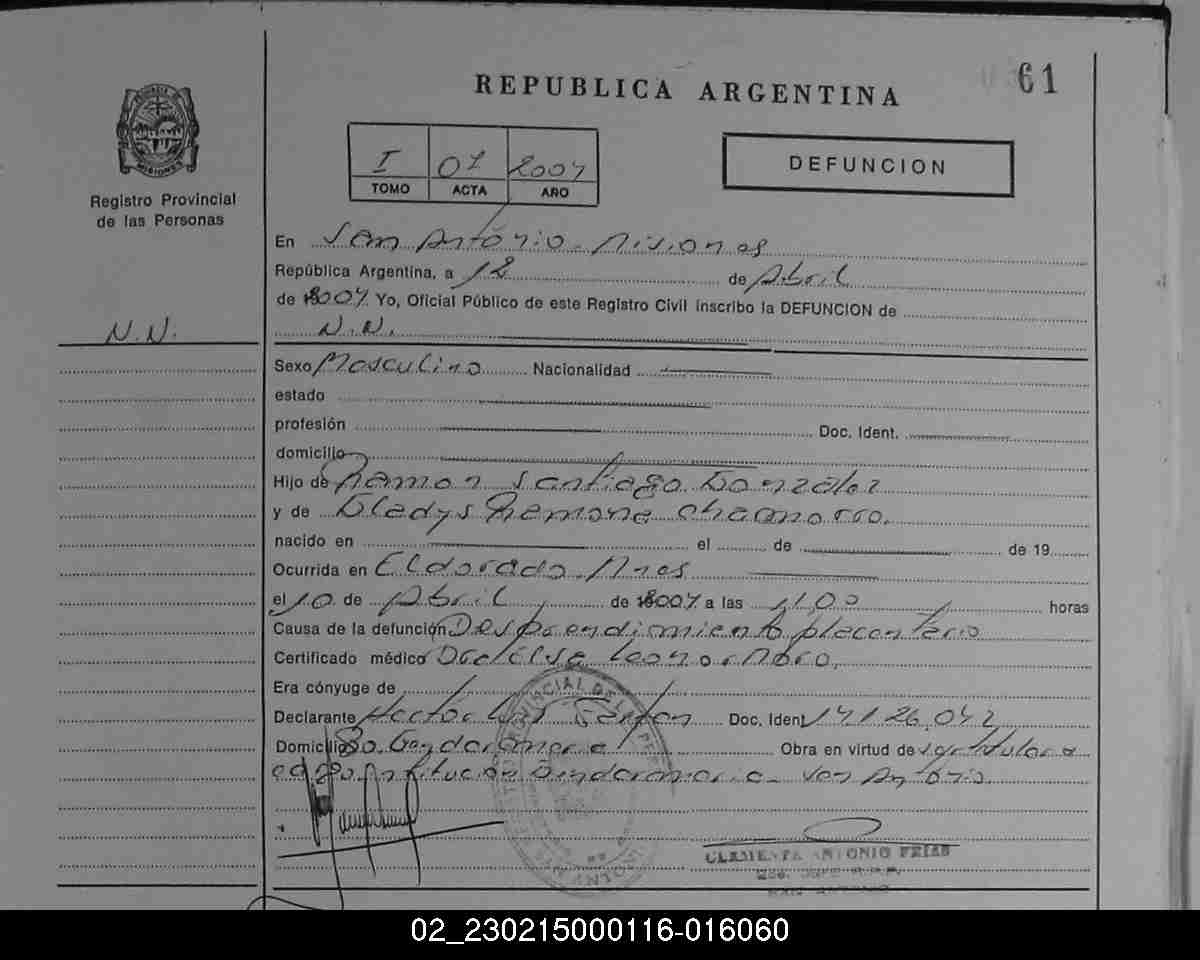 61
REPUBLICA ARGENTINA
I 07 2007
TOMO ACTA AÑO
DEFUNCION
Registro Provincial
de las Personas
N.N.
En San António. Misiones
República Argentina, a 12 de Abril
de 2007. Yo, Oficial Público de este Registro Civil inscribo la DEFUNCION de
N.N.
Sexo Masculino Nacionalidad
estado
profesión Doc. Ident.
domicilio
Hijo de Ramon Santiago Gonzalez
y de Gladys Ramona Chamorro.
nacido en el de de 19
Ocurrida en Eldorado. Mnes
el 10 de Abril de 2007 a las 1100 horas
Causa de la defunción Desprendimiento placentario
Certificado médico Dra. Elsa Leonor
Era cónyuge de
Declarante Hector Luis Doc. Ident 14.126.042
Domicilio Gendarmeria Obra en virtud de
institucion Gendarmeria San António.
CLEMENTE ANTONIO FRIAS
02_230215000116-016060